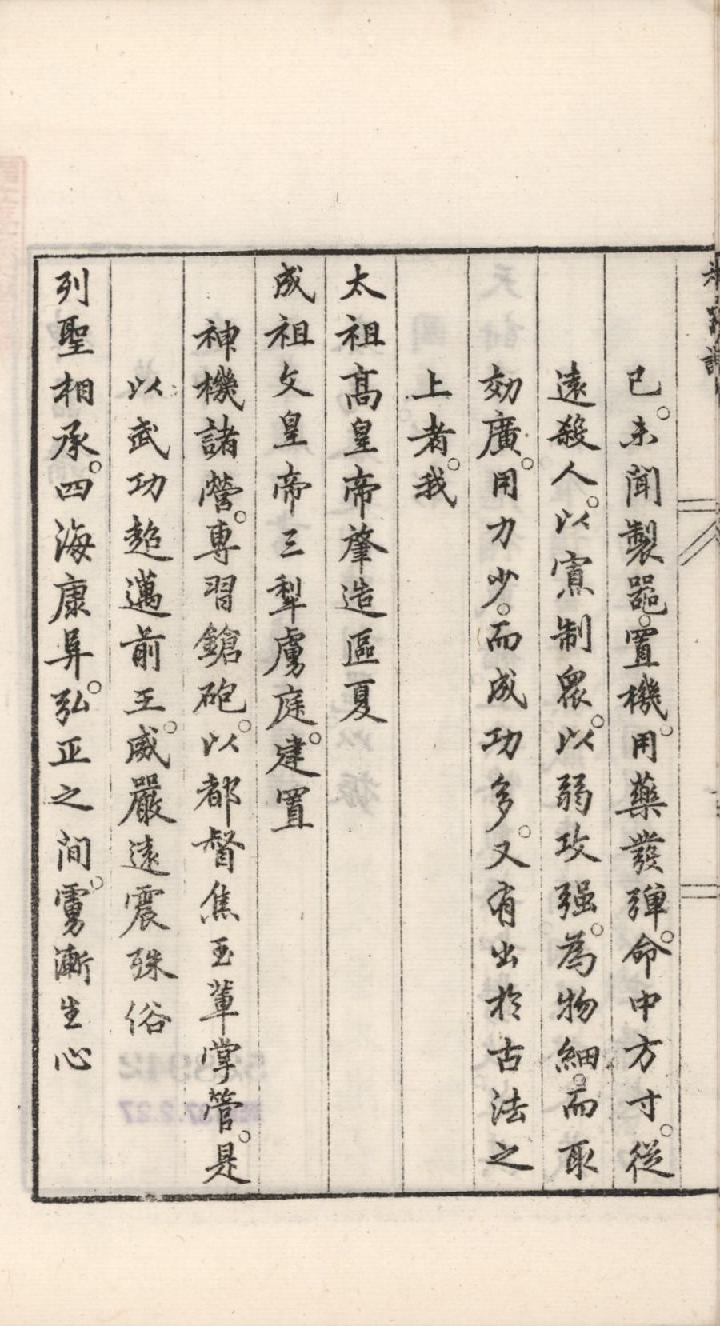 已。未聞製器。置機。用藥發彈。命中方寸。從
遠殺人。以寡制衆。以弱攻强。為物細。而取
効廣。用力少。而成功多。又有出於古法之
上者。我
太祖高皇帝肇造區夏
成祖文皇帝三犁虜庭。建置
神機諸營。專習鎗砲。以都督焦玉輩掌管。是
以武功超邁前王。威嚴遠震殊俗
列聖相承。四海康阜。弘正之間。虜漸生心